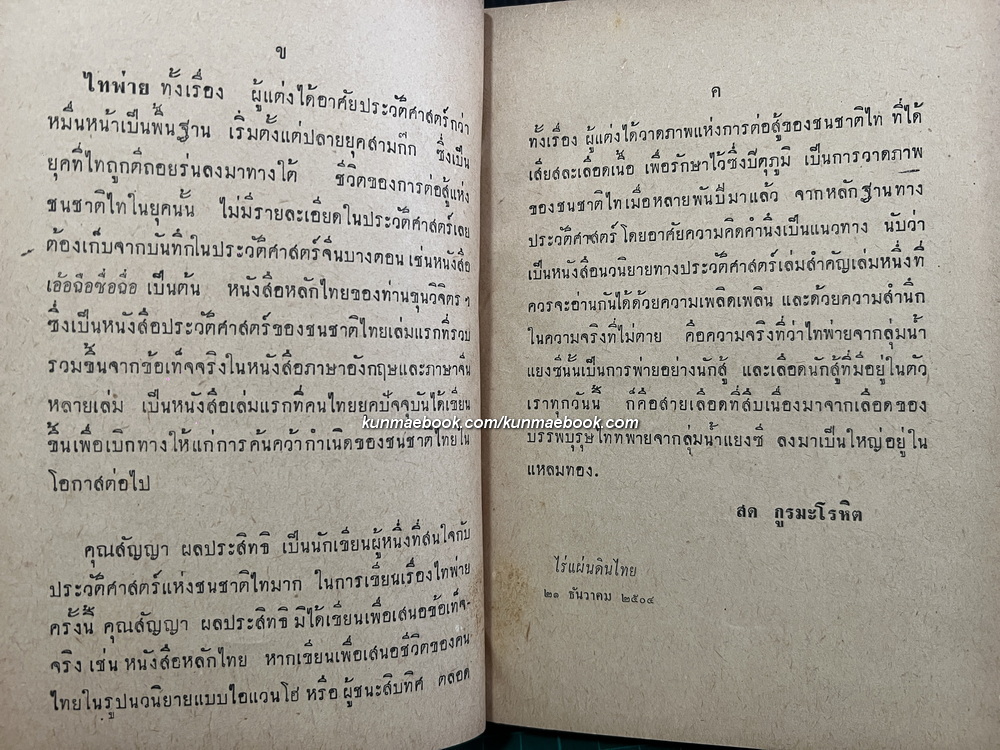 ข
ไทพ่าย ทั้งเรื่อง ผู้แต่งได้อาศัยประวัติศาสตร์กว่า
หมื่นหน้าเป็นพื้นฐาน เริ่มตั้งแต่ปลายยุคสามก๊ก ซึ่งเป็น
ยุคที่ไทถูกตีถอยร่นลงมาทางใต้ ชีวิตของการต่อสู้แห่ง
ชนชาติไทในยุคนั้น ไม่มีรายละเอียดในประวัติศาสตร์เลย
ต้องเก็บจากบันทึกในประวัติศาสตร์จีนบางตอน เช่นหนังสือ
เอ้อฉือซื่อฉื่อ เป็นต้น หนังสือหลักไทยของท่านขุนวิจิตร ฯ
ซึ่งเป็นหนังสือประวัติศาสตร์ของชนชาติไทยเล่มแรกที่รวบ
รวมขึ้นจากข้อเท็จจริงในหนังสือภาษาอังกฤษและภาษาจีน
หลายเล่ม เป็นหนังสือเล่มแรกที่คนไทยยุคปัจจุบันได้เขียน
ขึ้นเพื่อเบิกทางให้แก่การค้นคว้ากำเนิดของชนชาติไทยใน
โอกาสต่อไป
คุณสัญญา ผลประสิทธิ เป็นนักเขียนผู้หนึ่งที่สนใจกับ
ประวัติศาสตร์แห่งชนชาติไทมาก ในการเขียนเรื่องไทพ่าย
ครั้งนี้ คุณสัญญา ผลประสิทธิ มิได้เขียนเพื่อเสนอข้อเท็จ-
จริง เช่น หนังสือหลักไทย หากเขียนเพื่อเสนอชีวิตของคน
ไทยในรูปนวนิยายแบบไอแวนโฮ่ หรือ ผู้ชนะสิบทิศ ตลอด
ค
ทั้งเรื่อง ผู้แต่งได้วาดภาพแห่งการต่อสู้ของชนชาติไท ที่ได้
เสียสละเลือดเนื้อ เพื่อรักษาไว้ซึ่งปีตุภูมิ เป็นการวาดภาพ
ของชนชาติไทเมื่อหลายพันปีมาแล้ว จากหลักฐานทาง
ประวัติศาสตร์ โดยอาศัยความคิดคำนึงเป็นแนวทาง นับว่า
เป็นหนังสือนวนิยายทางประวัติศาสตร์เล่มสำคัญเล่มหนึ่งที่
ควรจะอ่านกันได้ด้วยความเพลิดเพลิน และด้วยความสำนึก
ในความจริงที่ไม่ตาย คือความจริงที่ว่าไทพ่ายจากลุ่มน้ำ
แยงซีนั้นเป็นการพ่ายอย่างนักสู้ และเลือดนักสู้ที่มีอยู่ในตัว
เราทุกวันนี้ ก็คือสายเลือดที่สืบเนื่องมาจากเลือดของ
บรรพบุรุษไทที่พ่ายจากลุ่มน้ำแยงซี ลงมาเป็นใหญ่อยู่ใน
แหลมทอง.
สด กูรมะโรหิต
ไร่แผ่นดินไทย
๒๑ ธันวาคม ๒๕๐๔
kunmaebook.com/kunmaebook.com